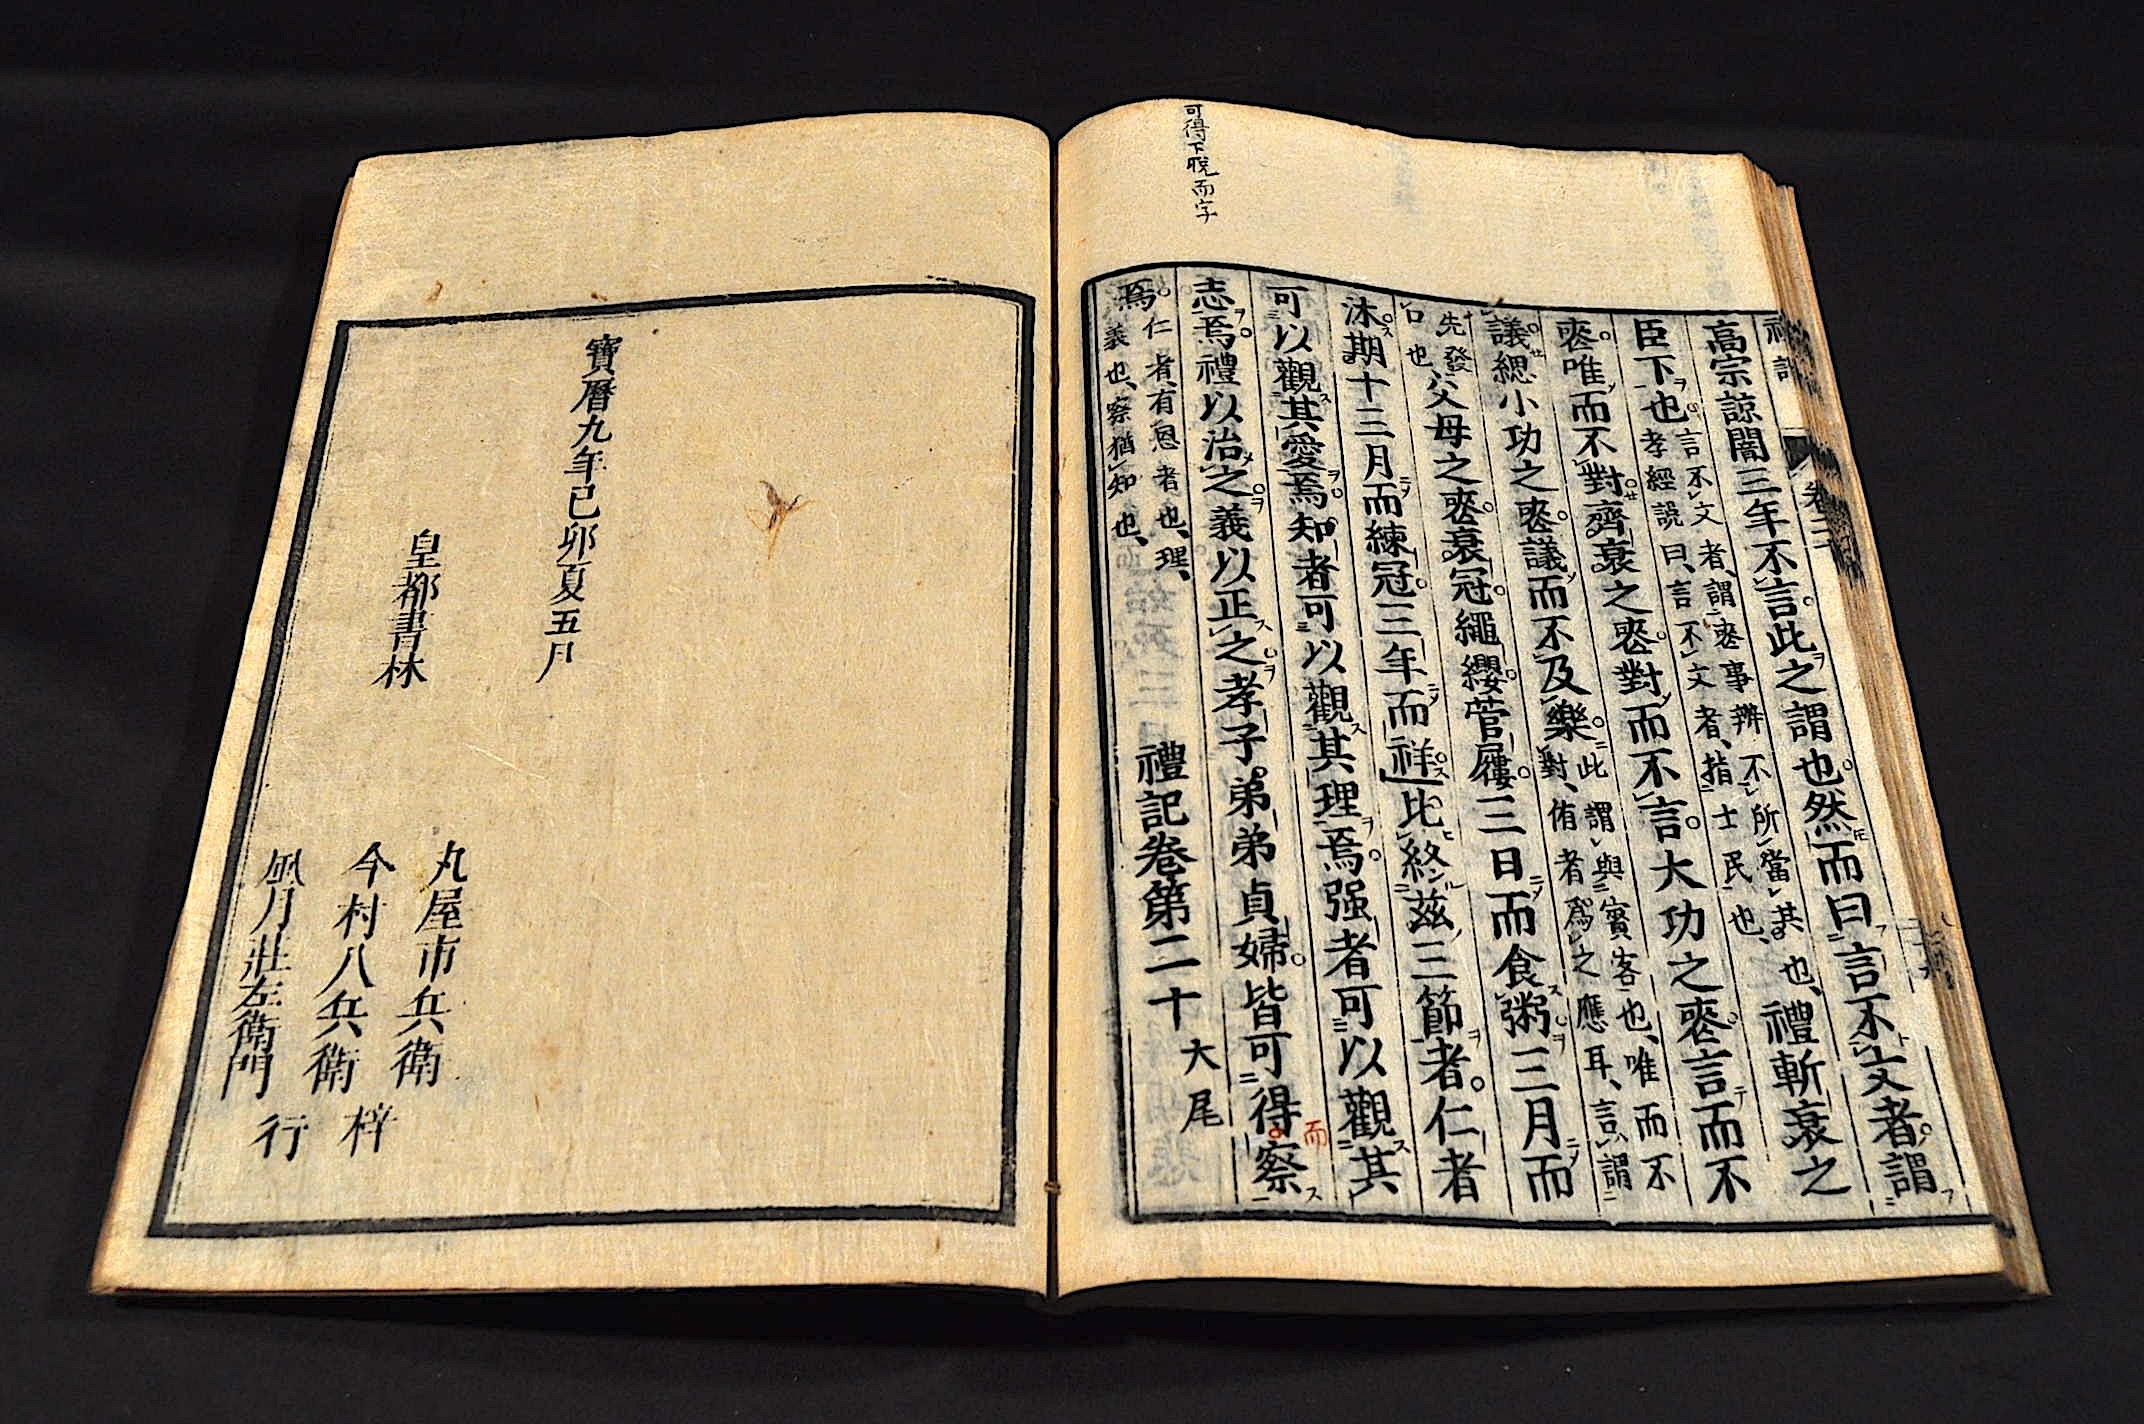 可得下脫而字
高宗諒闇三年不言此之謂也然而曰言不文者謂
臣下也言不文者謂喪事辨不所當共也孝經說曰言不文者指士民也禮斬衰之
喪唯而不對齊衰之喪對而不言大功之喪言而不
議緦小功之喪議而不及樂此謂與賓客也唯而不對侑者爲之應耳言謂
先發口也父母之喪衰冠繩纓菅屨三日而食粥三月而
沐期十三月而練冠三年而祥比終茲三節者仁者
可以觀其愛焉知者可以觀其理焉强者可以觀其
志焉禮以治之義以正之孝子弟弟貞婦皆可得察
而
焉仁者有恩者也理義也察猶知也
禮記卷第二十
大尾
卷二十
寶曆九年己卯夏五月
皇都書林
丸屋市兵衛
今村八兵衛
風月莊左衛門
梓行